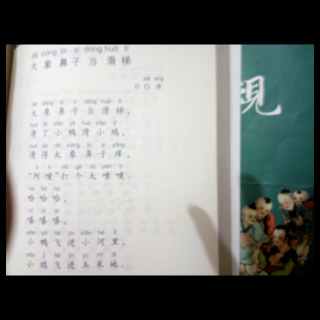 dà xiàng bí zi dāng huá tī
大象鼻子当滑梯
◎白冰
dà xiàng bí zi dāng huá tī
大象鼻子当滑梯，
滑了小鸭滑小鸡。
滑得大象鼻子痒，
“阿嚏”打个大喷嚏。
哈哈哈，
嘻嘻嘻，
小鸭飞进小河里，
小鸡飞进玉米地。